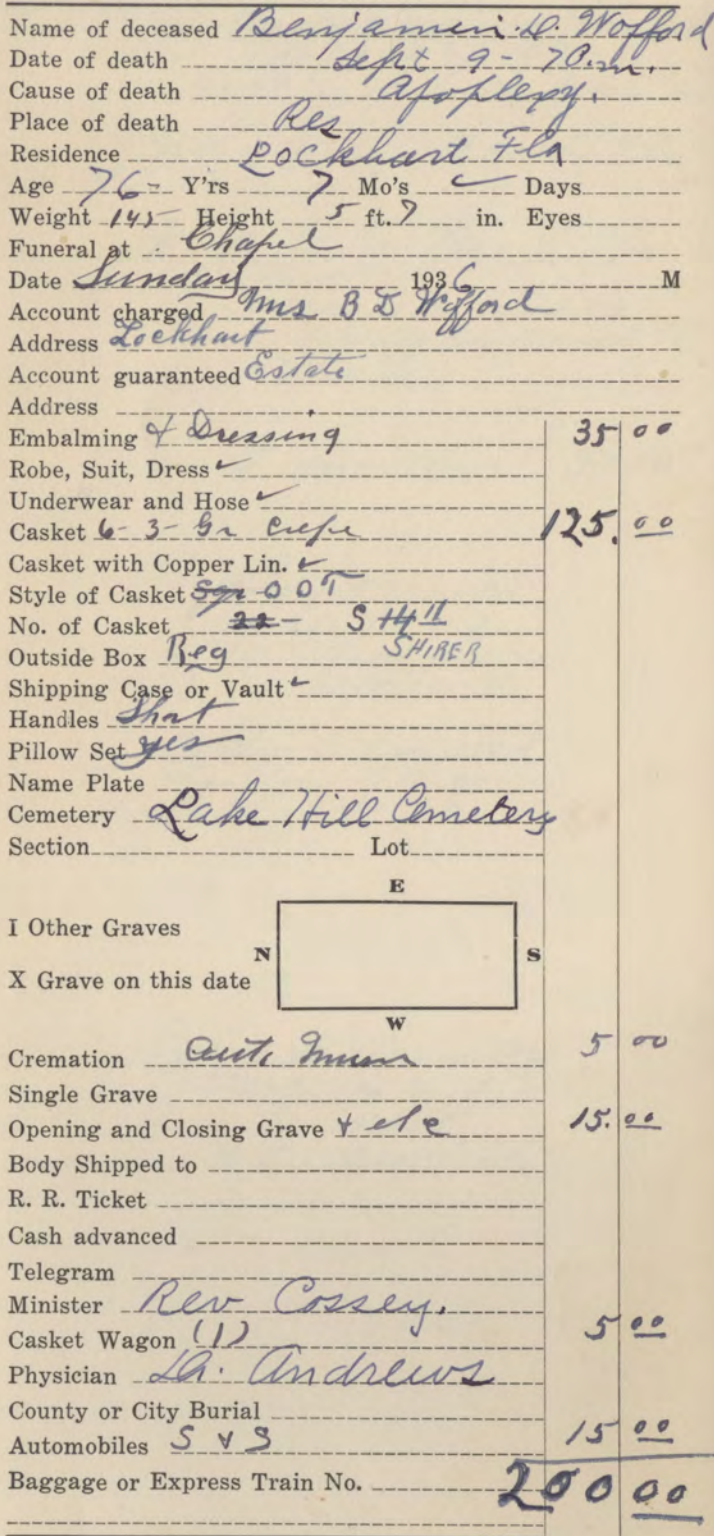 Name of deceased Benjamin D. Wofford
Date of death Sept 9 - 7 P.m.
Cause of death Apoplexy.
Place of death Res
Residence Lockhart Fla
Age 76 - Y'rs 7 Mo's ✓ Days
Weight 145 Height 5 ft. 7 in. Eyes
Funeral at Chapel
Date Sunday 1936 M
Account charged Mrs B D Wofford
Address Lockhart
Account guaranteed Estate
Address
Embalming & Dressing 35 00
Robe, Suit, Dress ✓
Underwear and Hose ✓
Casket 6-3- Gr Crepe 125. 00
Casket with Copper Lin. ✓
Style of Casket Sqr O O T
No. of Casket 22 - S
Outside Box Reg SHIRER
Shipping Case or Vault ✓
Handles Short
Pillow Set yes
Name Plate
Cemetery Lake Hill Cemetery
Section Lot
E
I Other Graves
N S
X Grave on this date
W
Cremation 5 00
Single Grave
Opening and Closing Grave & etc 15. 00
Body Shipped to
R. R. Ticket
Cash advanced
Telegram
Minister Rev Cossey.
Casket Wagon (1) 5 00
Physician Dr. Andrews
County or City Burial
Automobiles S & S 15 00
Baggage or Express Train No. 200 00